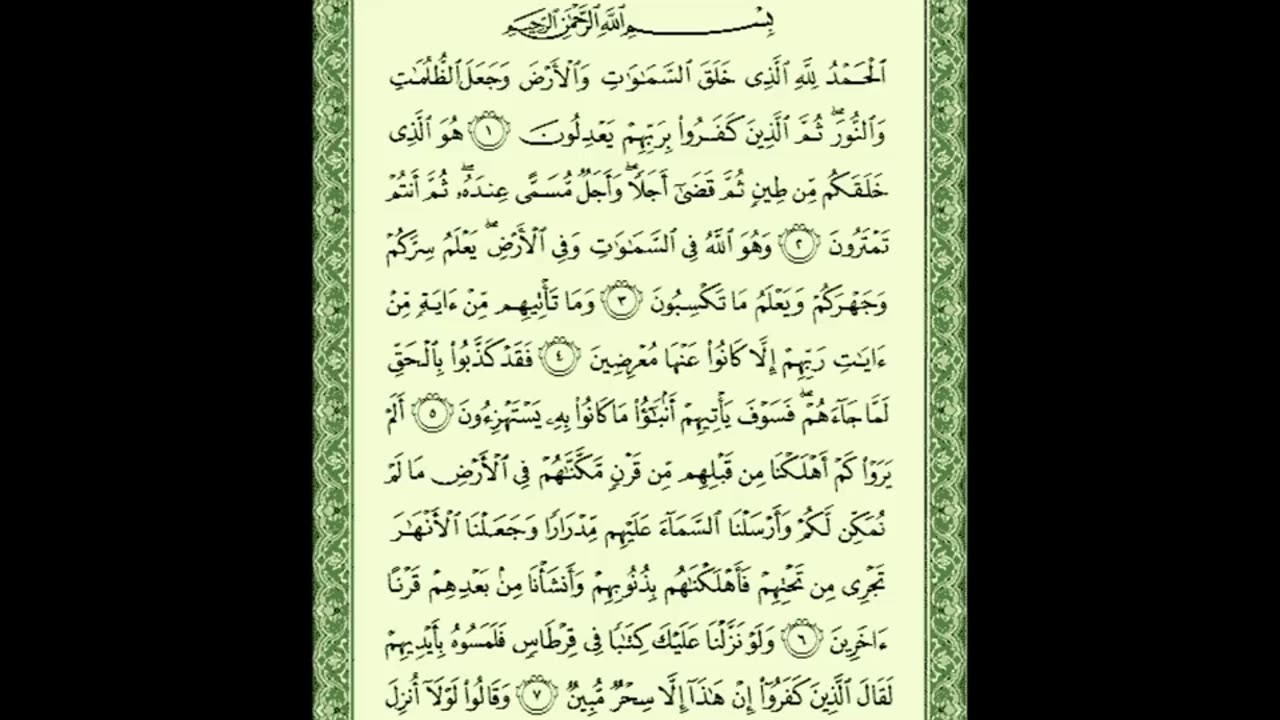 بِسْمِ ٱللَّهِ ٱلرَّحْمَٰنِ ٱلرَّحِيمِ
ٱلْحَمْدُ لِلَّهِ ٱلَّذِى خَلَقَ ٱلسَّمَٰوَٰتِ وَٱلْأَرْضَ وَجَعَلَ ٱلظُّلُمَٰتِ
وَٱلنُّورَ ۖ ثُمَّ ٱلَّذِينَ كَفَرُوا۟ بِرَبِّهِمْ يَعْدِلُونَ ١ هُوَ ٱلَّذِى
خَلَقَكُم مِّن طِينٍ ثُمَّ قَضَىٰٓ أَجَلًا ۖ وَأَجَلٌ مُّسَمًّى عِندَهُۥ ۖ ثُمَّ أَنتُمْ
تَمْتَرُونَ ٢ وَهُوَ ٱللَّهُ فِى ٱلسَّمَٰوَٰتِ وَفِى ٱلْأَرْضِ ۖ يَعْلَمُ سِرَّكُمْ
وَجَهْرَكُمْ وَيَعْلَمُ مَا تَكْسِبُونَ ٣ وَمَا تَأْتِيهِم مِّنْ ءَايَةٍ مِّنْ
ءَايَٰتِ رَبِّهِمْ إِلَّا كَانُوا۟ عَنْهَا مُعْرِضِينَ ٤ فَقَدْ كَذَّبُوا۟ بِٱلْحَقِّ
لَمَّا جَآءَهُمْ ۖ فَسَوْفَ يَأْتِيهِمْ أَنۢبَٰٓؤُا۟ مَا كَانُوا۟ بِهِۦ يَسْتَهْزِءُونَ ٥ أَلَمْ
يَرَوْا۟ كَمْ أَهْلَكْنَا مِن قَبْلِهِم مِّن قَرْنٍ مَّكَّنَّٰهُمْ فِى ٱلْأَرْضِ مَا لَمْ
نُمَكِّن لَّكُمْ وَأَرْسَلْنَا ٱلسَّمَآءَ عَلَيْهِم مِّدْرَارًا وَجَعَلْنَا ٱلْأَنْهَٰرَ
تَجْرِى مِن تَحْتِهِمْ فَأَهْلَكْنَٰهُم بِذُنُوبِهِمْ وَأَنشَأْنَا مِنۢ بَعْدِهِمْ قَرْنًا
ءَاخَرِينَ ٦ وَلَوْ نَزَّلْنَا عَلَيْكَ كِتَٰبًا فِى قِرْطَاسٍ فَلَمَسُوهُ بِأَيْدِيهِمْ
لَقَالَ ٱلَّذِينَ كَفَرُوٓا۟ إِنْ هَٰذَآ إِلَّا سِحْرٌ مُّبِينٌ ٧ وَقَالُوا۟ لَوْلَآ أُنزِلَ